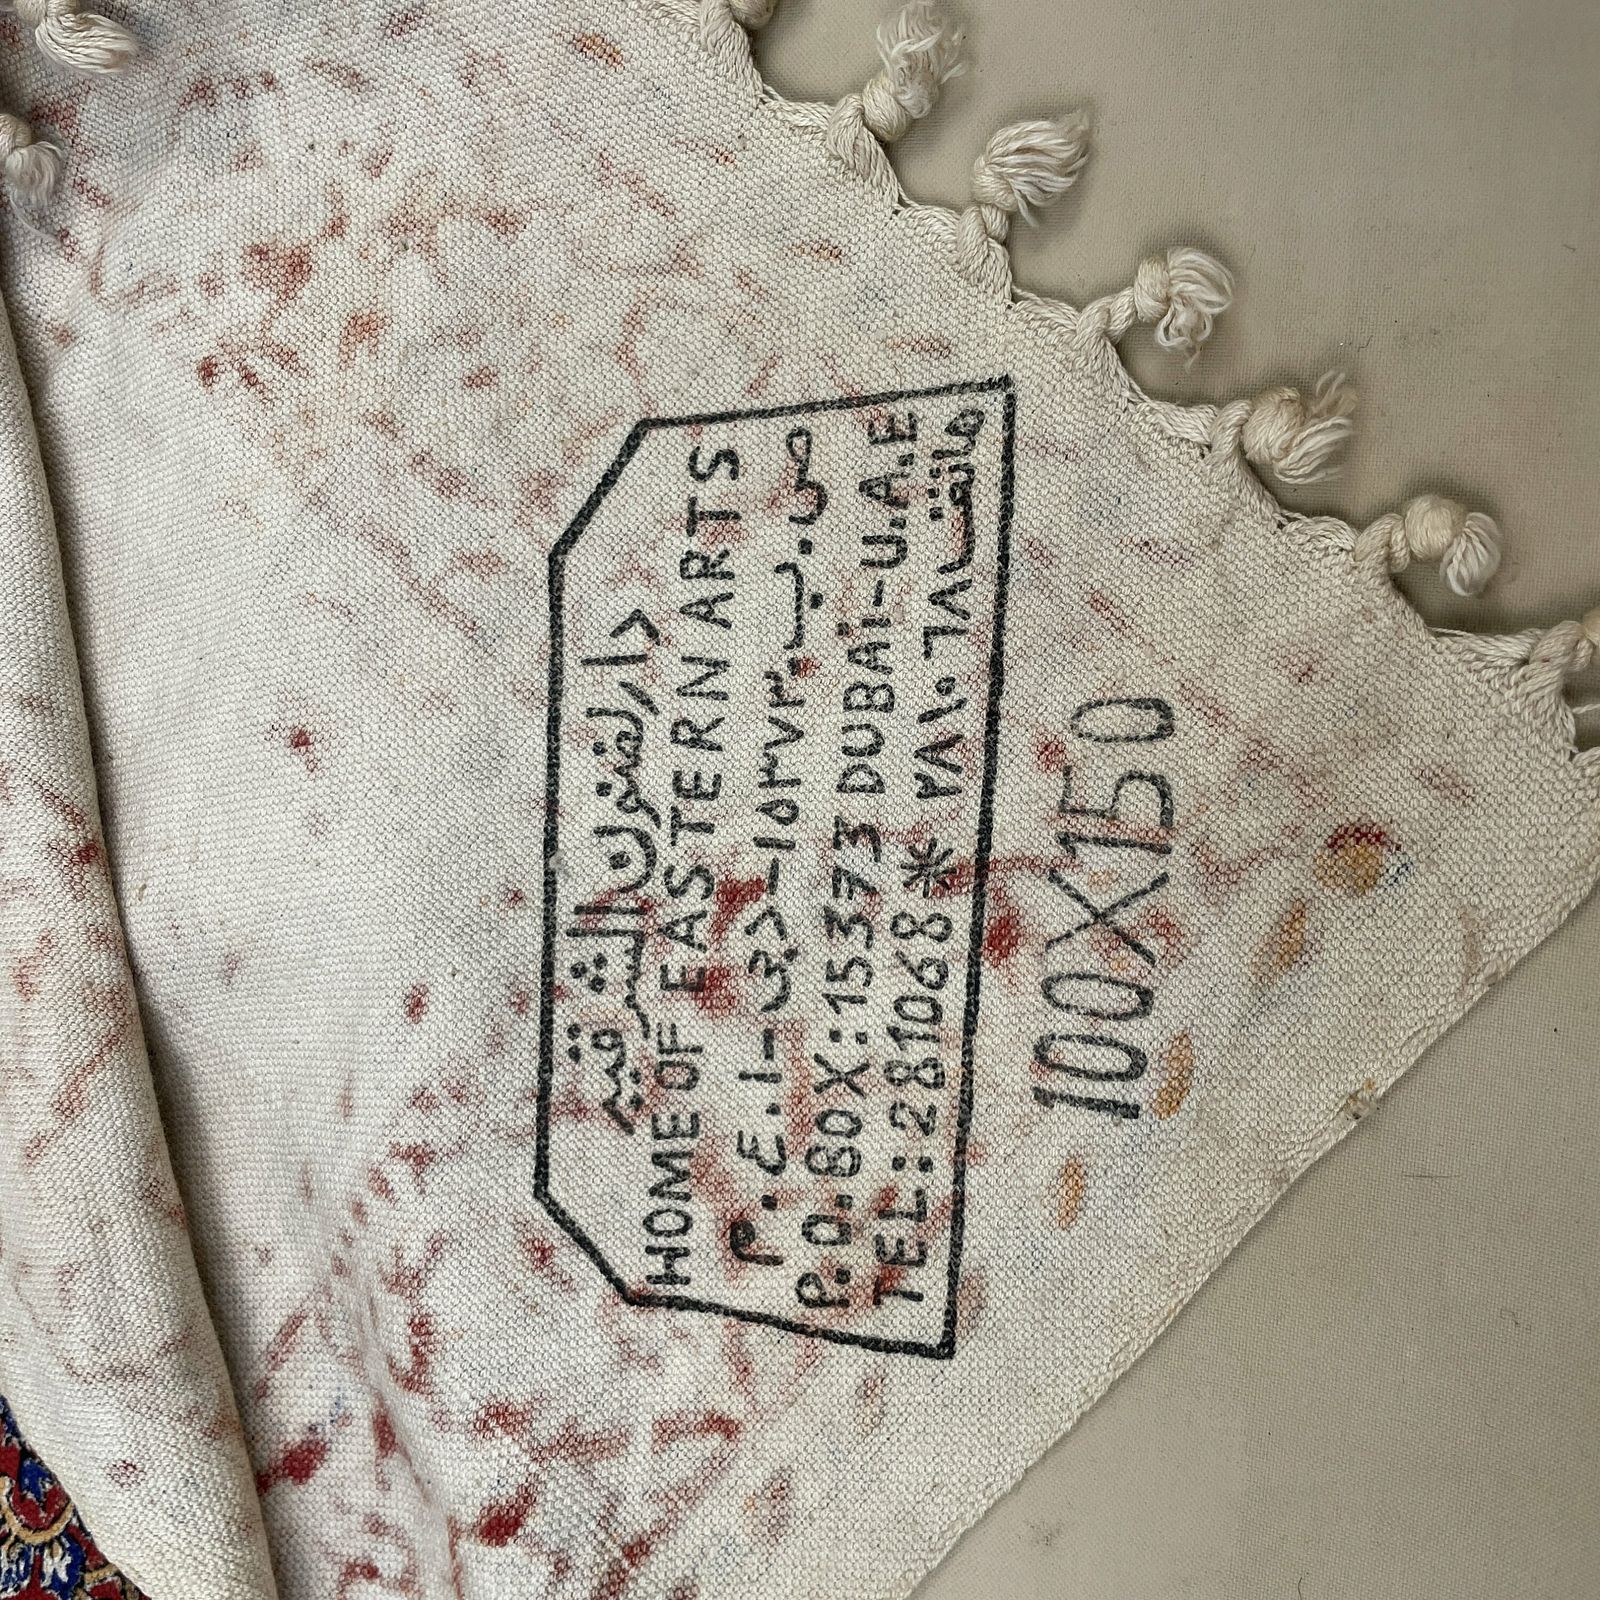 دار الفنون الشرقيه
HOME OF EASTERN ARTS
ص.ب.١٥٣٧٣-دبی-ا.ع.م
P.O.BOX:15373 DUBAi-U.A.E
TEL:281068* ٢٨١٠٦٨ هاتف
100X150